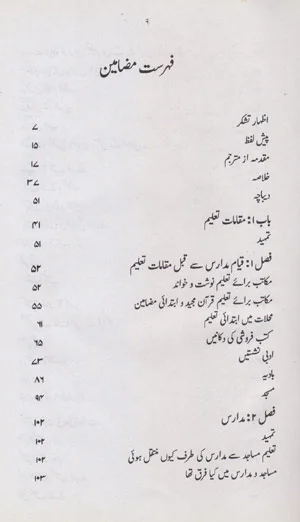 ۹
فہرست مضامین
اظہار تشکر ۷
پیش لفظ ۱۵
مقدمہ از مترجم ۱۷
خلاصہ ۳۷
دیباچہ ۵۱
باب ۱: مقامات تعلیم ۴۱
تمہید ۵۱
فصل ۱: قیام مدارس سے قبل مقامات تعلیم ۵۲
مکاتب برائے تعلیم نوشت و خواند ۵۲
مکاتب برائے تعلیم قرآن مجید و ابتدائی مضامین ۵۵
محلات میں ابتدائی تعلیم ۶۱
کتب فروشی کی دکانیں ۶۵
ادبی نشستیں ۷۳
بادیہ ۸۶
مسجد ۹۴
فصل ۲: مدارس ۱۰۲
تمہید ۱۰۲
تعلیم مساجد سے مدارس کی طرف کیوں منتقل ہوئی ۱۰۲
مساجد و مدارس میں کیا فرق تھا ۱۰۳